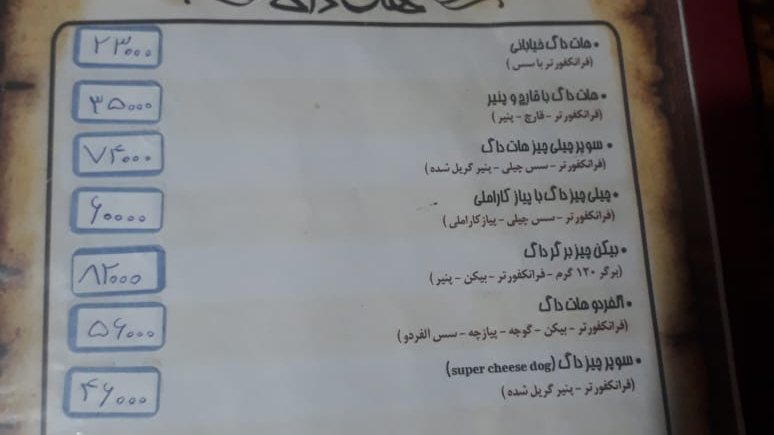 هات داگ
• هات داگ خیابانی ۲۳۰۰۰
(فرانکفورتر با سس)
• هات داگ با قارچ و پنیر ۳۵۰۰۰
(فرانکفورتر - قارچ - پنیر)
• سوپر چیلی چیز هات داگ ۷۴۰۰۰
(فرانکفورتر - سس چیلی - پنیر گریل شده)
• چیلی چیز داگ با پیاز کاراملی ۶۰۰۰۰
(فرانکفورتر - سس چیلی - پیاز کاراملی)
• بیکن چیز برگر داگ ۸۲۰۰۰
(برگر ۱۲۰ گرم - فرانکفورتر - بیکن - پنیر)
• آلفردو هات داگ ۵۶۰۰۰
(فرانکفورتر - بیکن - گوجه - پیازچه - سس الفردو)
• سوپر چیز داگ (super cheese dog) ۴۶۰۰۰
(فرانکفورتر - پنیر گریل شده)